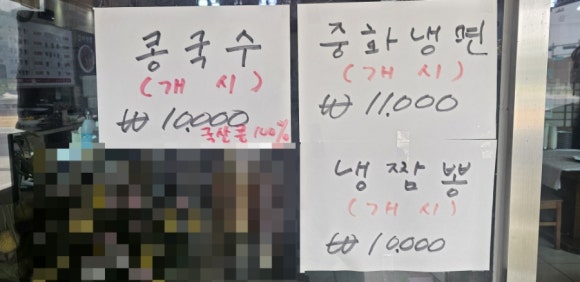 콩국수
(개시)
₩10,000
국산콩 100%
중화냉면
(개시)
₩11,000
냉짬뽕
(개시)
₩10,000